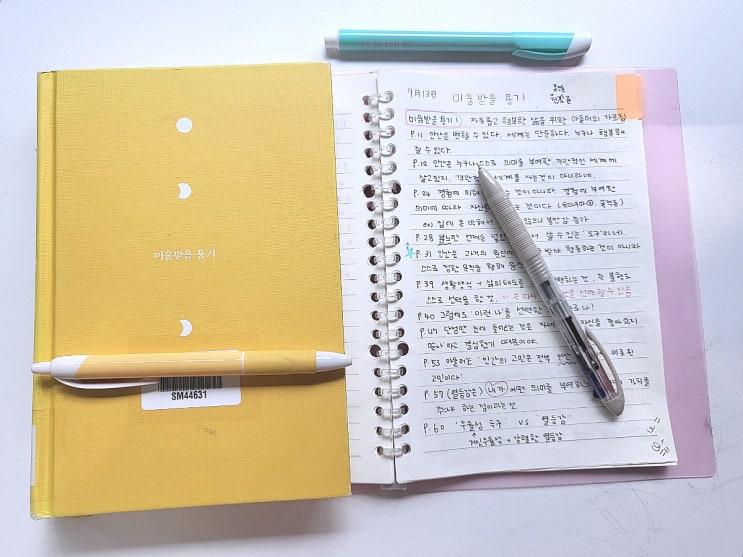 미움받을 용기
SM44631
9月13日 미움받을 용기
미움받을 용기 1) 자유롭고 행복한 삶을 위한 아들러의 가르침
P.11 인간은 변할 수 있다. 세계는 단순하다. 누구나 행복해
질 수 있다.
P.12 인간은 누구나 스스로 의미를 부여한 주관적인 세계에
살고있지. 객관적 세계를 사는것이 아니라네.
P.24 경험에 의해 는 것이 아니라 경험에 부여한
의미에 따라 자신을 는 것이다
ex) 집에 불만감 증가
P.28 분노란 언제든 넣었다 쓸 수 있는 '도구'라네.
P.31 인간은 과거의 원인에 받아 행동하는 것이 아니라
스스로 정한 목적을 향해
P.39 생활양식 → 삶의태도를 택하는 것. 즉 불행도
스스로 선택을 한 것. → 즉 다시 을 선택할 수 있음
P.40 그럼에도 '이런 나'를 선택한 나?
P.47 단점만 눈에 들어오는 것은 자네 자신을 좋아하지
말아야지 라고 결심했기 때문이야.
P.53 아들러는 '인간의 고민은 전부 인간 비롯된
고민이다'
P.57 (열등감은) 내가 어떤 의미를 부여하 가치를
주냐 하는 점이라는 것.
P.60 '우월성 추구' VS '열등감'